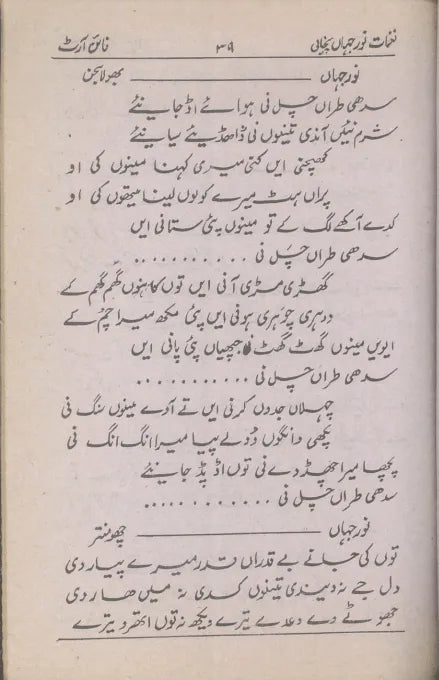 نغمات نور جہاں پنجابی ۳۹ فائن آرٹ
نور جہاں ــــــــــ
سدھی طراں چل نی ہوائے اڈ جانیئے
شرم نئیں آندی تینوں نی ڈاھڈیئے سیانیئے
کھچنی ایں کنی میری کہنا مینوں کی او
پراں ہٹ میرے کولوں لینا میتھوں کی او
کدے آکھے لگ کے تو مینوں پئی ستانی ایں
سدھی طراں چل نی ...........
گھڑی مڑی آنی ایں توں کاہنوں گھم گھم کے
دوہری چوہری ہونی ایں پئی مکھ میرا چم کے
ایویں مینوں گھٹ گھٹ جپھیاں پئی پانی ایں
سدھی طراں چل نی ...........
چہلاں جدوں کرنی ایں تے آدے مینوں سنگ نی
پکھی وانگوں ڈولے پیا میرا انگ انگ نی
پچھا میرا چھڈ دے نی توں اڈ پڈ جانیئے
سدھی طراں چل نی ...........
نور جہاں ــــــــــ چھومنتر
توں کی جانے بے قدراں قدر میرے پیار دی
دل جے نہ دیندی تینوں کدی نہ میں ھاردی
جھوٹے وے وعدے تیرے ویکھ نہ توں اتھرو میرے